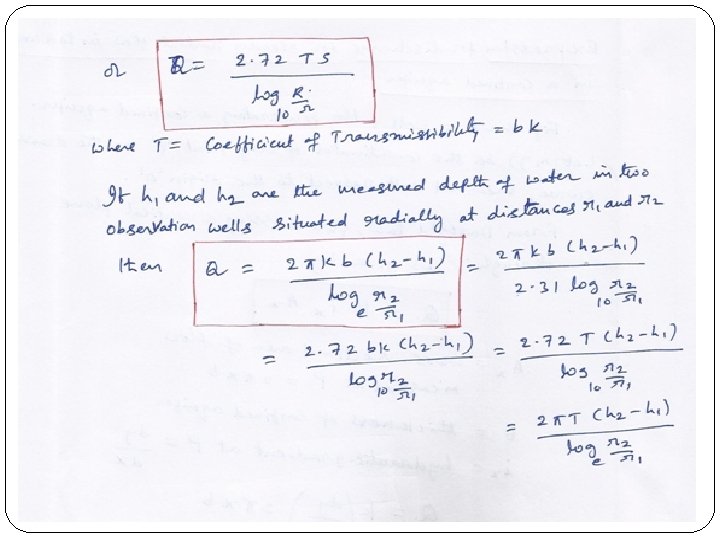 or Q = 2.72 TS / log10 R/r
where T = Coefficient of Transmissibility = bk
If h1 and h2 are the measured depth of water in two
observation wells situated radially at distances r1 and r2
then Q = 2πkb (h2-h1) / loge r2/r1 = 2πkb (h2-h1) / 2.31 log10 r2/r1
= 2.72 bk (h2-h1) / log10 r2/r1 = 2.72 T (h2-h1) / log10 r2/r1
= 2πT (h2-h1) / loge r2/r1